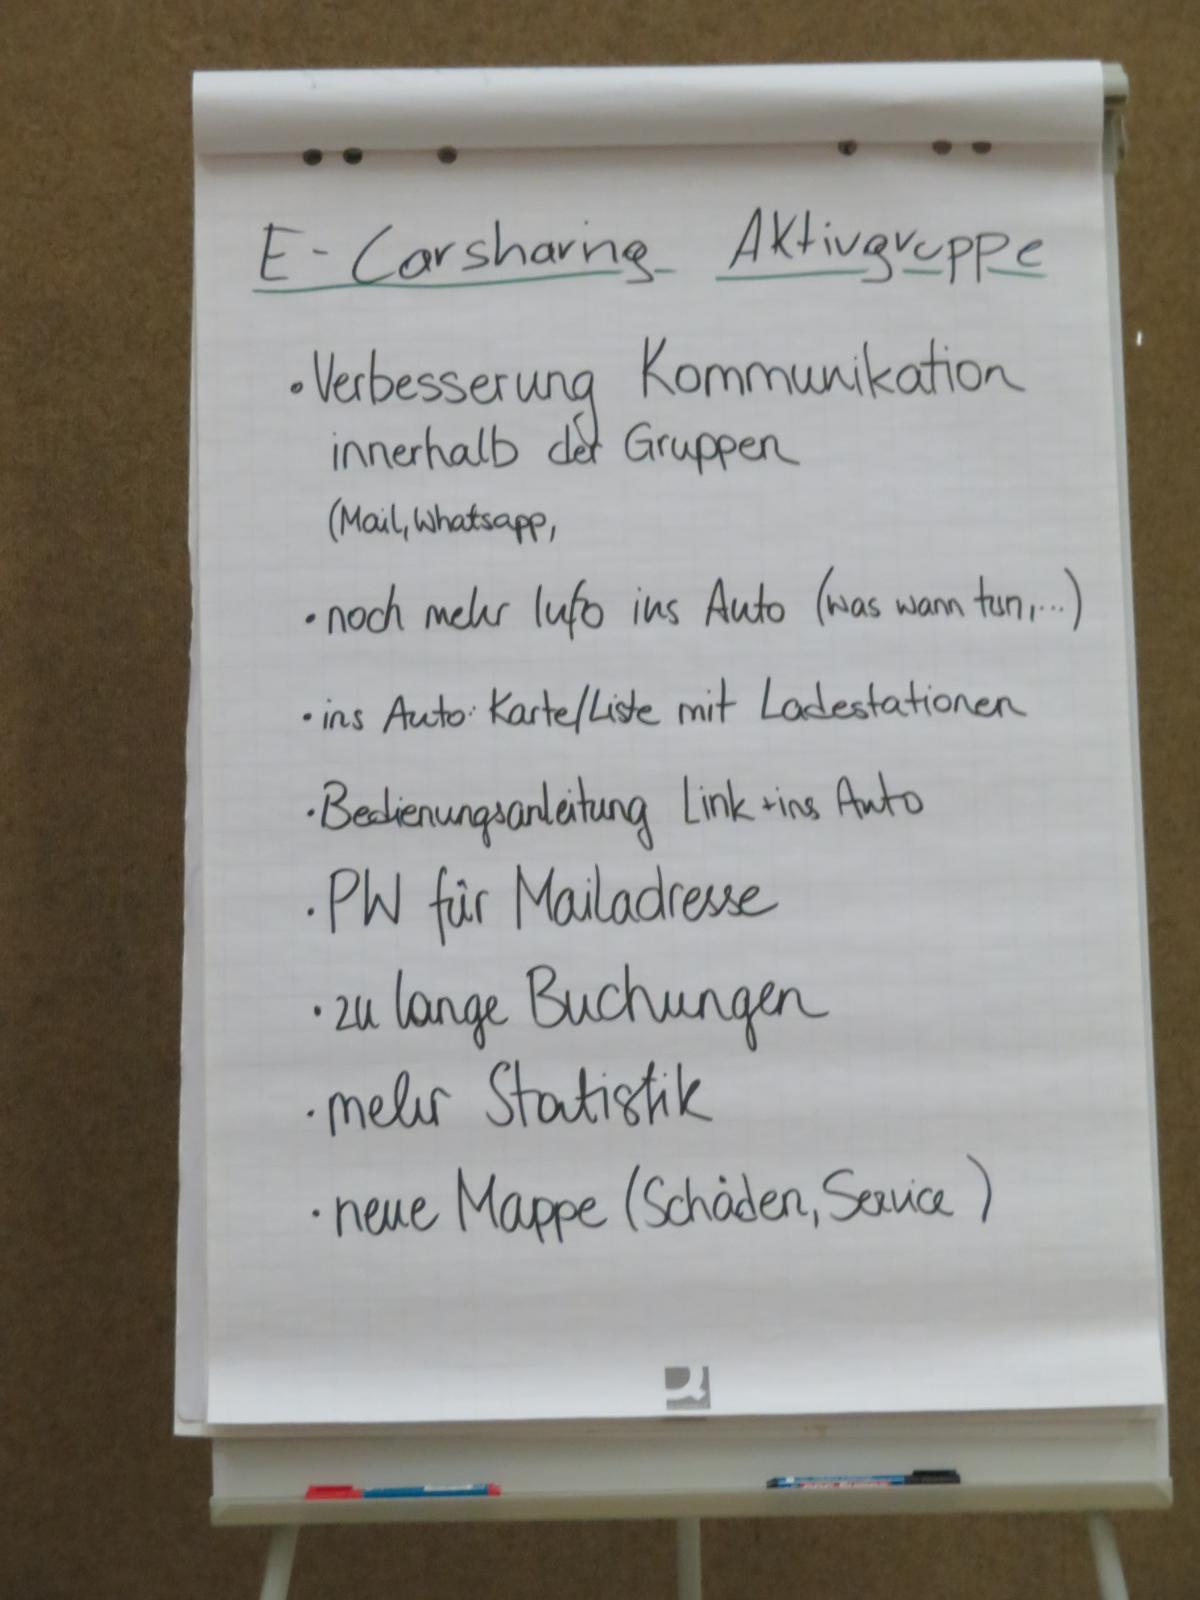 E-Carsharing Aktivgruppe
• Verbesserung Kommunikation
innerhalb der Gruppen
(Mail, Whatsapp,
• noch mehr Info ins Auto (was wann tun,...)
• ins Auto: Karte/Liste mit Ladestationen
• Bedienungsanleitung Link + ins Auto
• PW für Mailadresse
• zu lange Buchungen
• mehr Statistik
• neue Mappe (Schäden, Service)